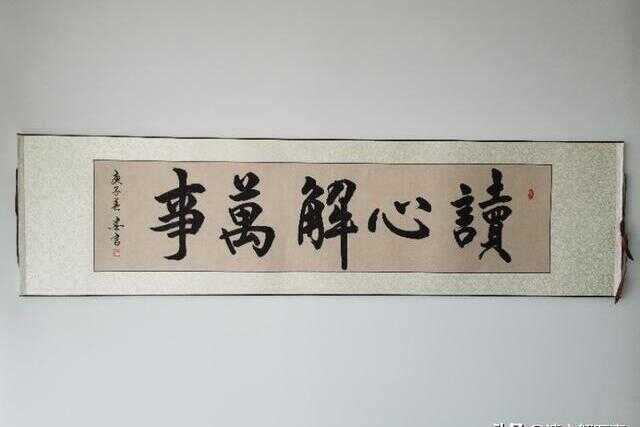 讀心解萬事
庚子春